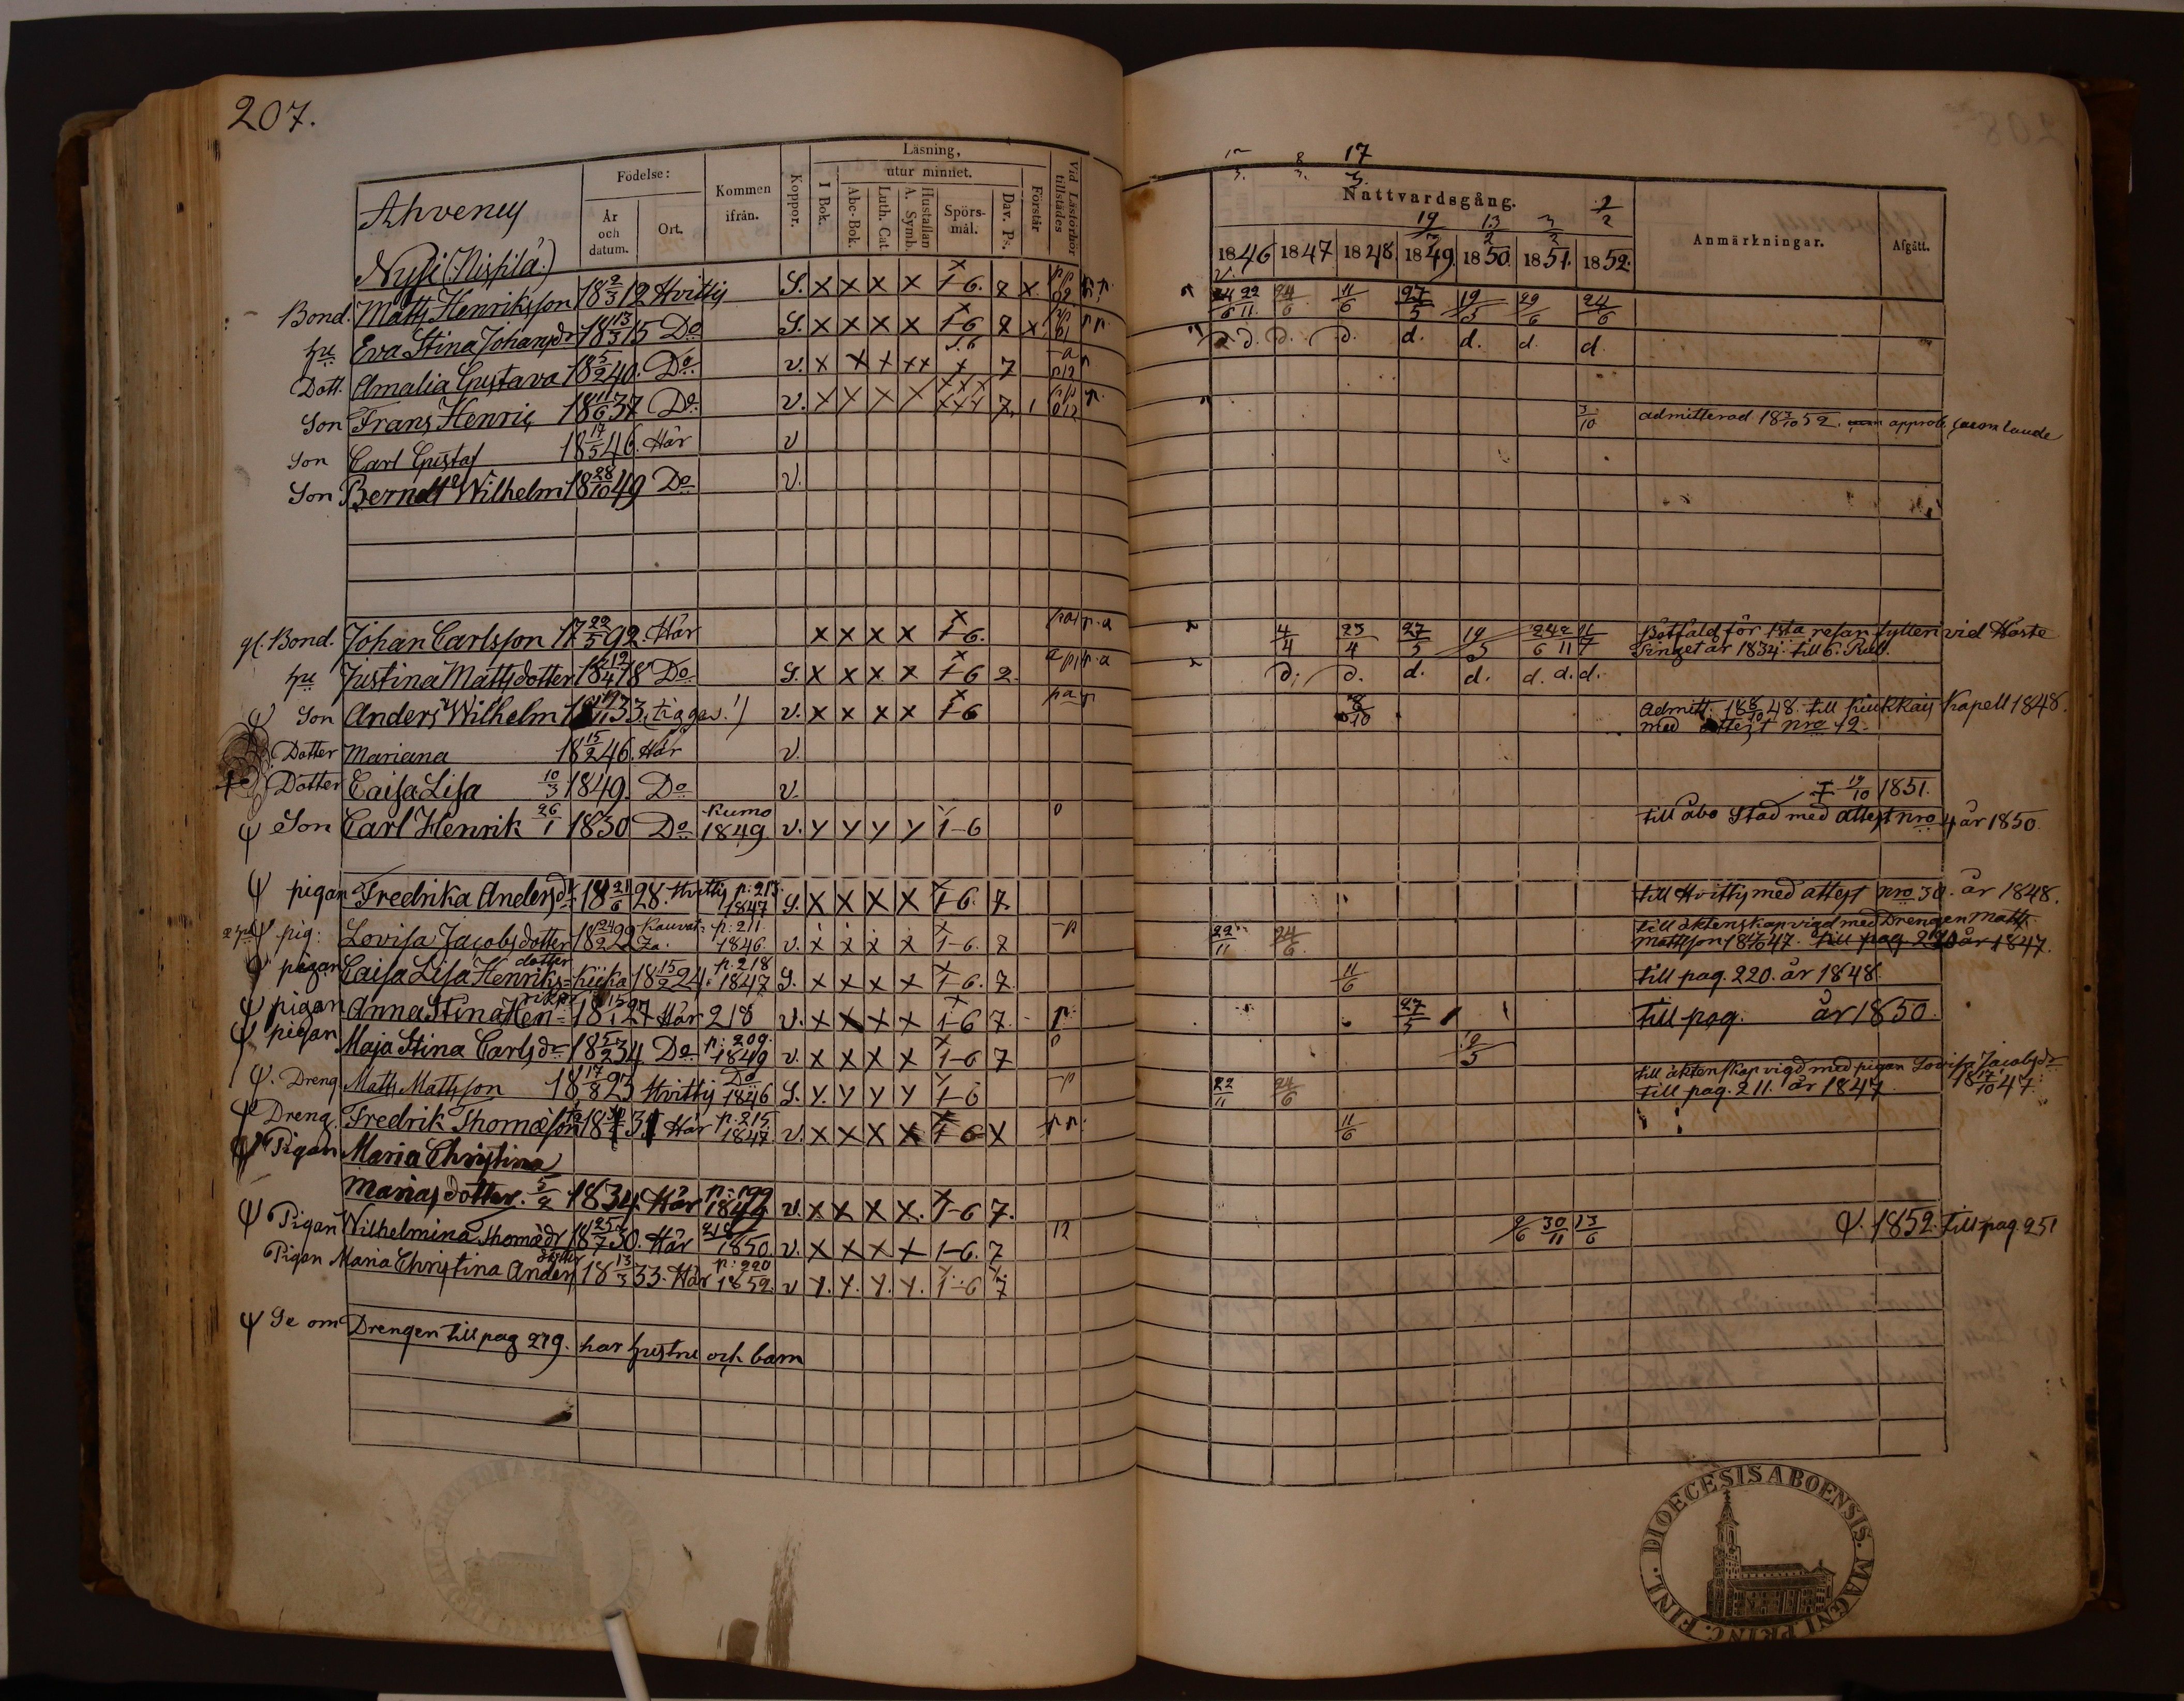 207.
Ahvenus
Nysi (Nispilä.)
Födelse:
År och datum.
Ort.
Kommen ifrån.
Koppor.
Läsning,
I Bok.
utur minnet.
Abc-Bok.
Luth. Cat.
A. Symb.
Hustaflan
Spörs-mål.
Dav. Ps.
Förstår
Vid Läsförhör tillstädes
17
Nattvardsgång.
1846 1847 1848 1849 1850 1851 1852
Anmärkningar.
Afgått.
Bond. Matts Henriksson 18 2/3 12 Hvittis S. x x x x 1-6. 24/6 22/11 24/6 11/6 27/5 19/5 29/6 24/6
hu Eva Stina Johansdr 18 13/3 15 Do S. x x x x 1-6 d. d. d. d. d. d. d.
Dott. Amalia Gustava 18 5/2 40. Do v. x x x xx x 7
Son Frans Henric 18 11/6 37 Do v. x x x x 7 3/10 admitterad 18 3/10 52. approb. cum laude
Son Carl Gustaf 18 17/5 46. Här v
Son Berndt Wilhelm 18 28/10 49 Do v.
gl. Bond. Johan Carlsson 17 22/5 92. Här x x x x 1-6. 4/4 23/4 27/5 19/5 Bötfäld för 1sta resan fylleri vid Höste
Tinget år 1834. till 6. Rub.
hu Justina Mattsdotter Do S. x x x x 1-6 2. d. d. d. d. d. d. d.
Son Anders Wilhelm 33. v. x x x x 1-6 8/10 Admitt. 18 8/10 48. till Kiukkais Kapell 1848.
med attest nro 12.
Dotter Mariana 18 15/2 46. Här v.
Dotter Caisa Lisa 10/3 1849. Do v. † 19/10 1851.
Son Carl Henrik 26/1 1830 Do Kumo 1849 v. y y y y 1-6 till Åbo Stad med attest nro 4 år 1850.
pigan Fredrika Andersdr 18 21/6 28. Hvittis p: 213. 1847 S. x x x x 1-6. 7. till Hvittis med attest nro 30. år 1848.
pig: Lovisa Jacobsdotter Kauvatsa. p: 211 1846. v. x x x x 1-6. 22/11 24/6 till äktenskap vigd med Drengen Matts
Mattsson 18 17/10 47. till pag 219 år 1847.
pigan Caisa Lisa Henriksdotter Kiika 18 15/2 24. p. 218 1847 S. x x x x 1-6. 7. 11/6 till pag. 220. år 1848.
pigan Anna Stina Hen 18 15/1 27 Här 218 v. x x x x 1-6 7. 27/5 till pag. år 1850.
pigan Maja Stina Carlsdr 18 5/2 34 Do p: 209. 1849 v. x x x x 1-6 7 2/5
Dreng Matts Mattsson 18 17/8 23 Hvittis Do 1846 S. y. y y y 1-6 22/11 24/6 till äktenskap vigd med pigan Lovisa Jacobsdr
till pag. 211. år 1847 18 17/10 47.
Dreng Fredrik Thomasson Här p: 215 1847. v. x x x x 1-6 x 11/6
Pigan Maria Christina
Mariasdotter. 5/2 1834. Här p: 199 v. x x x x. 1-6 7.
Pigan Wilhelmina Thomasdr 18 25/7 30. Här 1850. v. x x x x 1-6. 7 30/11 13/6 1852. till pag. 251
Pigan Maria Christina Andersdotter 18 13/3 33. Här p: 220 1852. v y. y. y. y. 1-6 7
Se om Drengen till pag 219. har hustru och barn
DIOECESIS ABOENSIS. MAGNI PRINC. FINL.